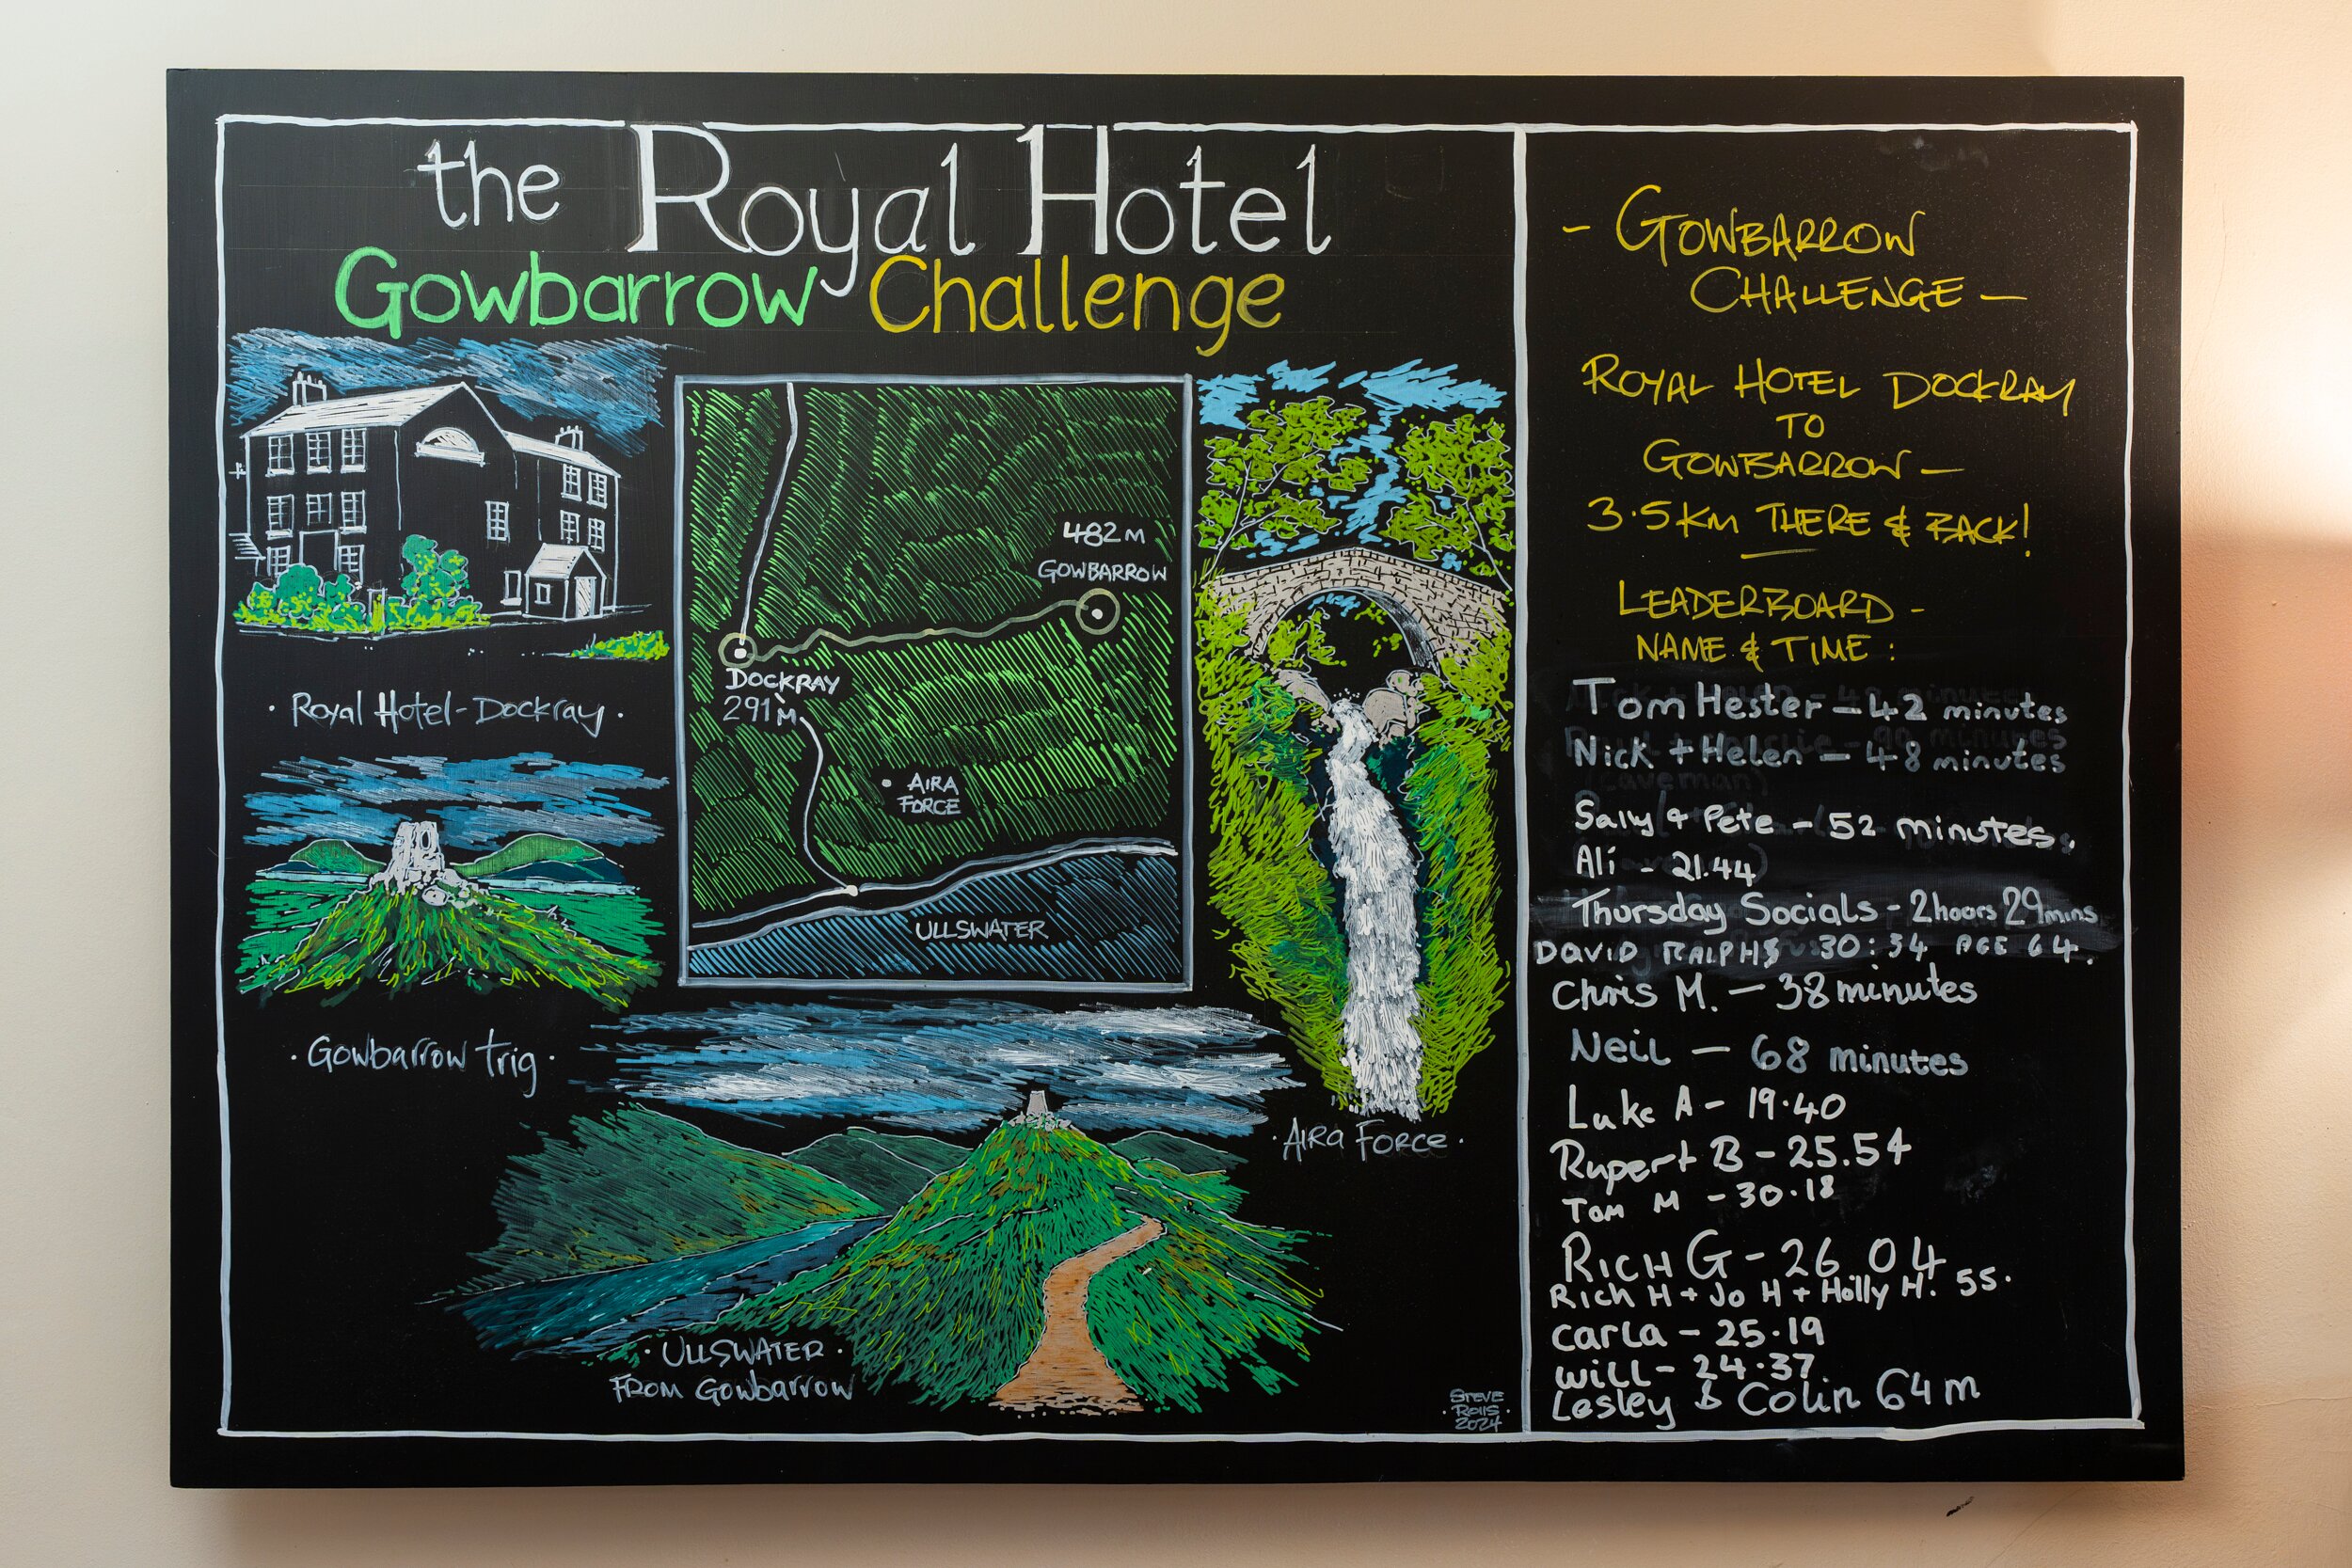 the Royal Hotel
Gowbarrow Challenge
· Royal Hotel-Dockray ·
· Gowbarrow trig ·
482 M
GOWBARROW
DOCKRAY
291 M
· AIRA
FORCE
ULLSWATER
· AIRA FORCE ·
· ULLSWATER ·
FROM GOWbarrow
STEVE
· ROIIS ·
2024
- GOWBARROW
CHALLENGE -
ROYAL HOTEL DOCKRAY
TO
GOWBARROW -
3·5 KM THERE & BACK!
LEADERBOARD -
NAME & TIME :
Tom Hester - 42 minutes
Nick + Helen - 48 minutes
Sally & Pete - 52 minutes.
Ali - 21.44
Thursday Socials - 2hoors 29mins
DAVID RALPHS 30:34 AGE 64.
Chris M. - 38 minutes
Neil - 68 minutes
Luke A - 19·40
Rupert B - 25.54
Tom M - 30·18
RICH G - 26 04
Rich H + Jo H + Holly H. 55.
carla - 25·19
will - 24·37
Lesley & Colin 64m